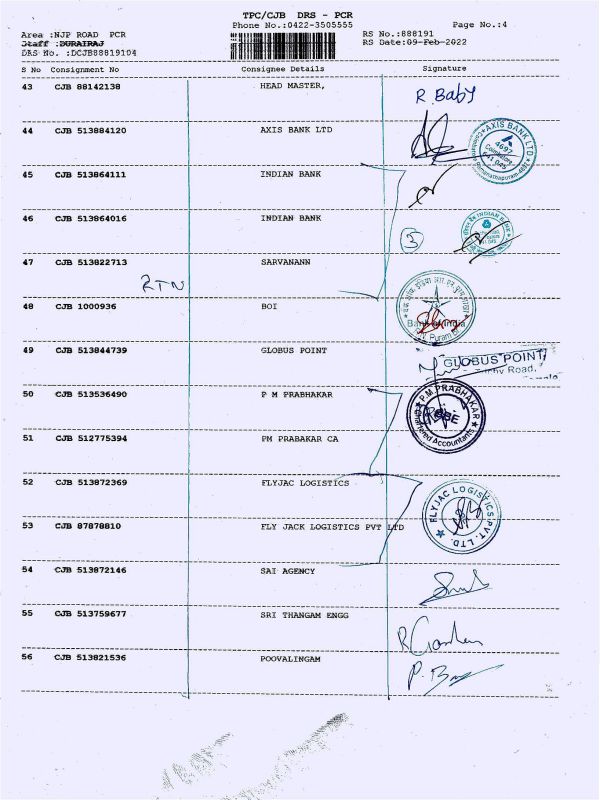 TPC/CJB DRS - PCR
Phone No.:0422-3505555 Page No.:4
Area :NJP ROAD PCR RS No.:888191
Staff :DURAIRAJ RS Date:09-Feb-2022
DRS No. :DCJB88819104
S No Consignment No Consignee Details Signature
43 CJB 88142138 HEAD MASTER, R. Baby
44 CJB 513884120 AXIS BANK LTD
AXIS BANK LTD
4697
Coimbatore
641 045
45 CJB 513864111 INDIAN BANK
46 CJB 513864016 INDIAN BANK
INDIAN BANK
3
47 CJB 513822713 SARVANANN
RTN
48 CJB 1000936 BOI
Bank of India
Puram
49 CJB 513844739 GLOBUS POINT
GLOBUS POINT
Road,
50 CJB 513536490 P M PRABHAKAR
P.M.PRABHAKAR
Chartered Accountants
51 CJB 512775394 PM PRABAKAR CA
52 CJB 513872369 FLYJAC LOGISTICS
FLYJAC LOGISTICS PVT. LTD.
53 CJB 87878810 FLY JACK LOGISTICS PVT LTD
54 CJB 513872146 SAI AGENCY
55 CJB 513759677 SRI THANGAM ENGG
56 CJB 513821536 POOVALINGAM